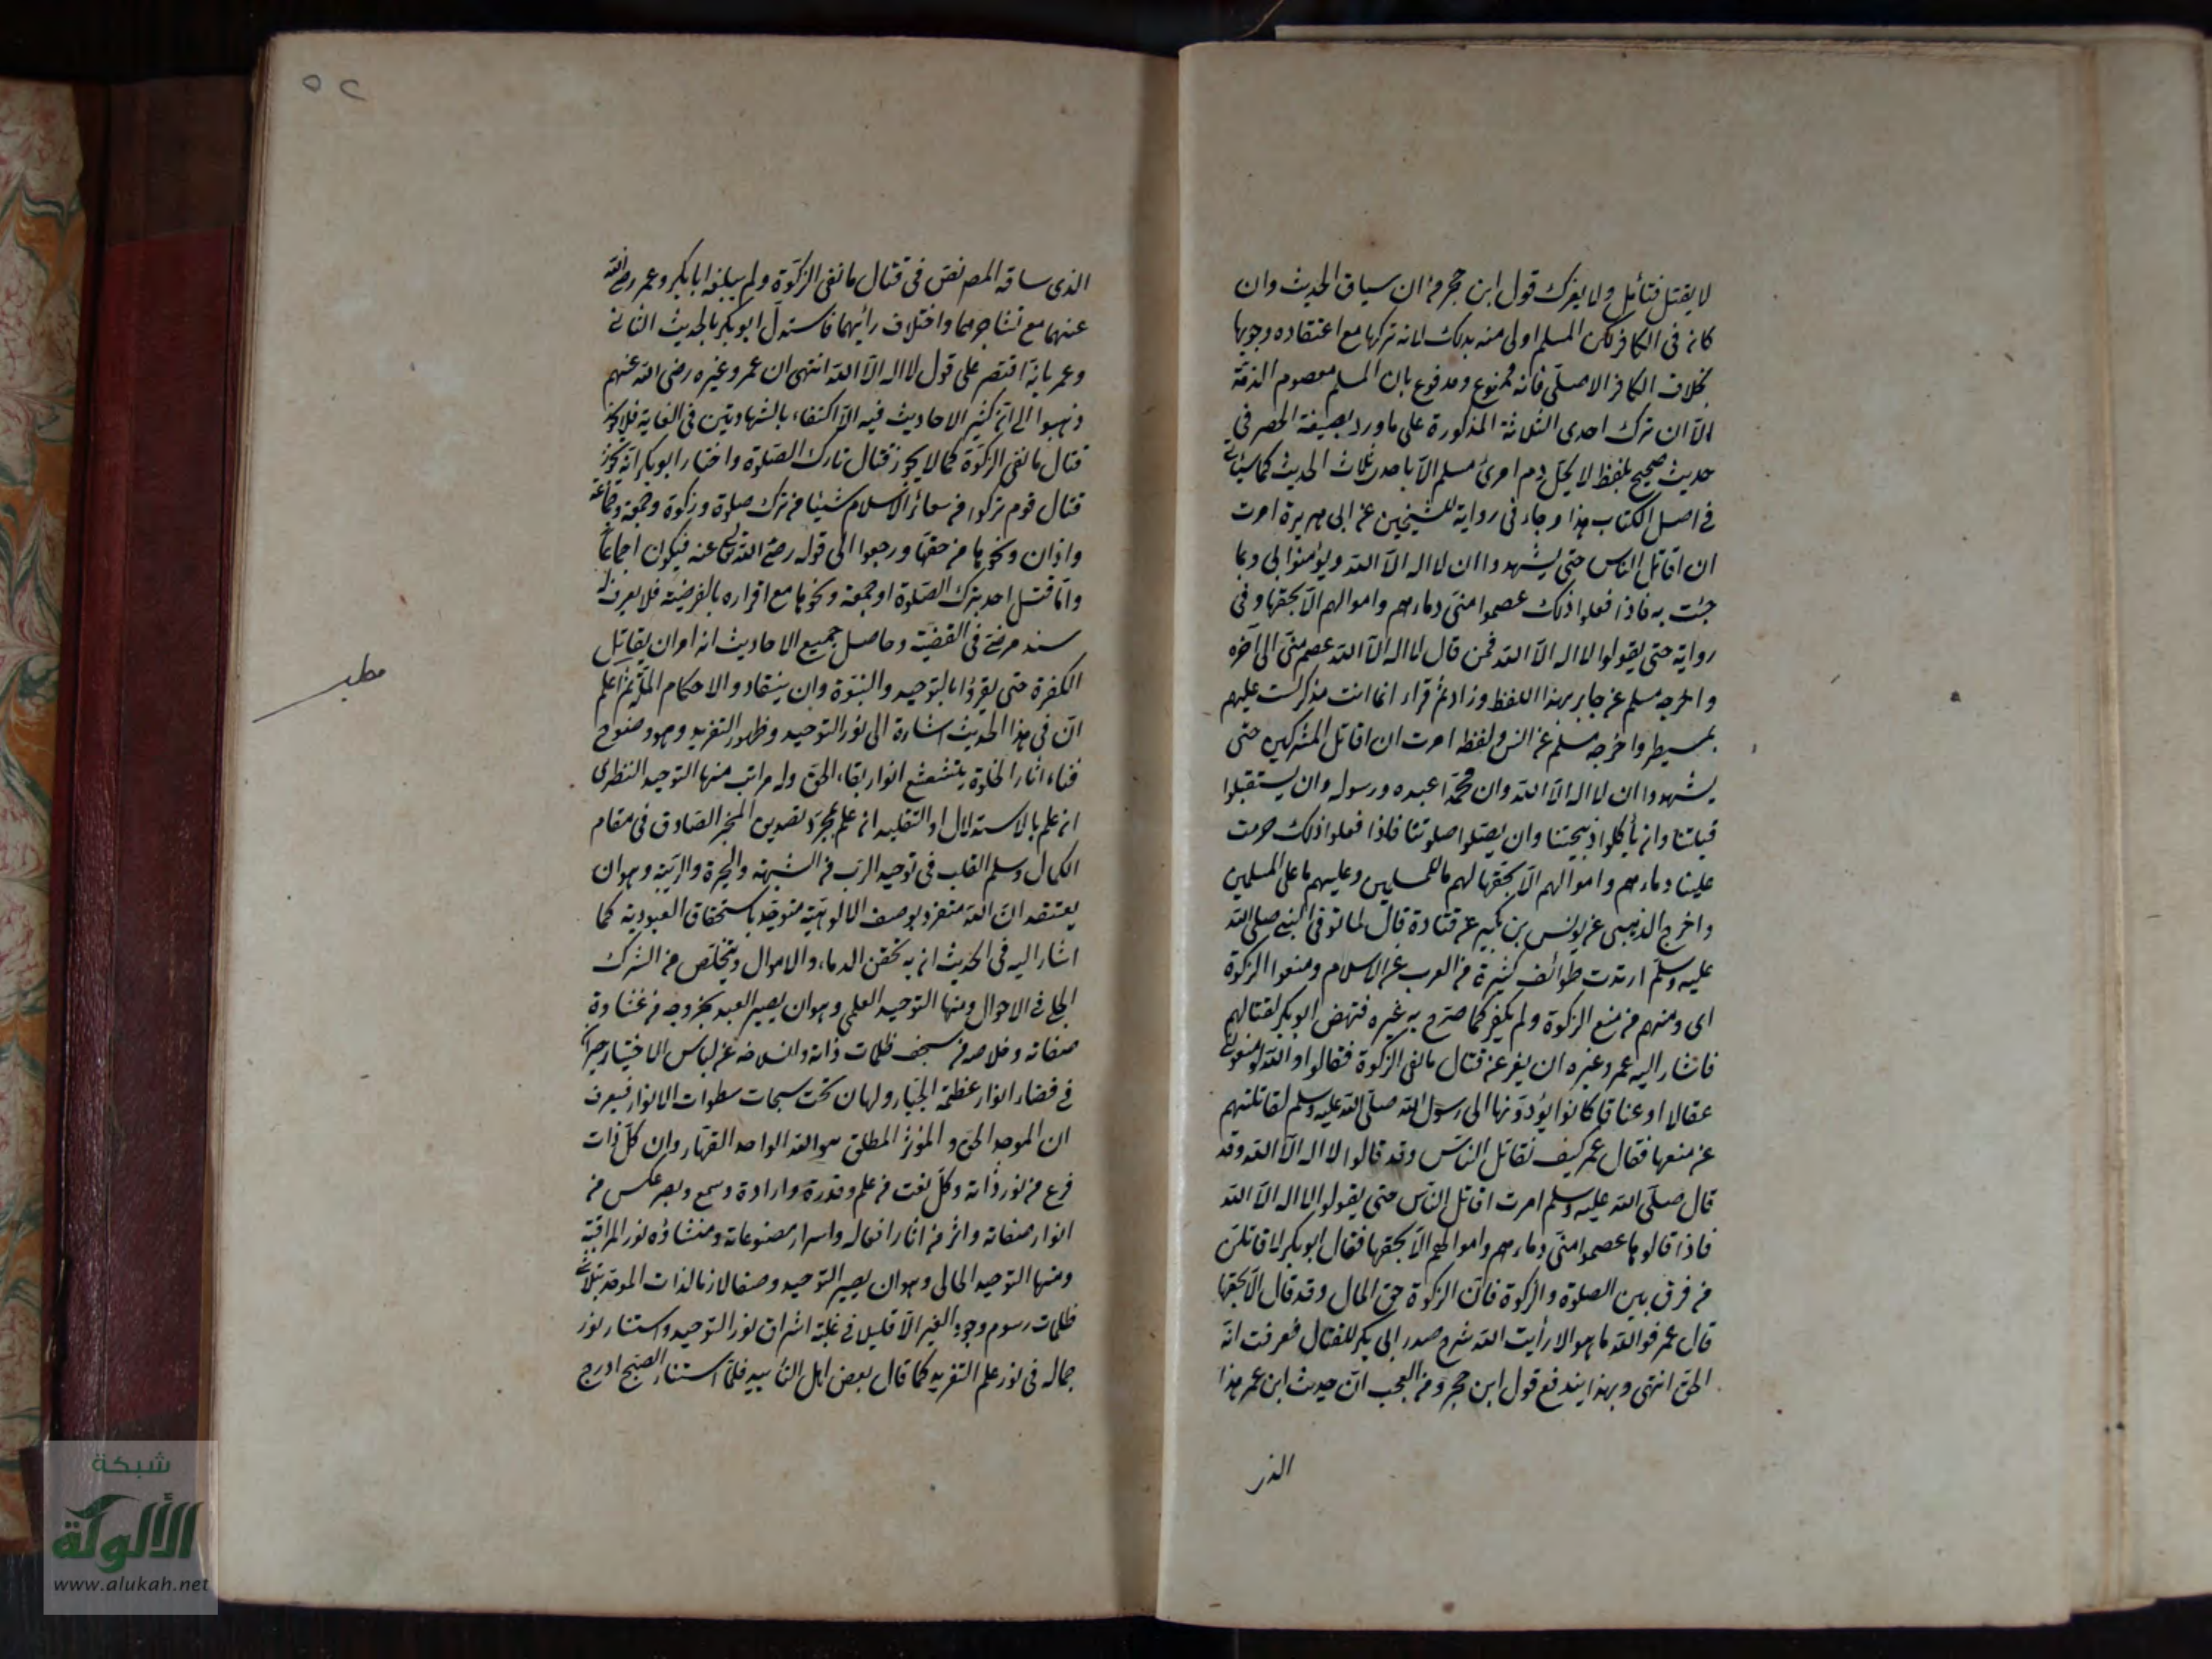 لا يقتل فتأمل ولا يغرك قول ابن حجر من ان سياق الحديث وان
كان في الكافر لكن المسلم اولى منه بذلك لانه تركها مع اعتقاده وجوبها
بخلاف الكافر الاصلي فانه ممنوع ومدفوع بان المسلم معصوم الذمة
الا ان ترك احدى الثلاثة المذكورة على ما ورد بصيغة الحصر في
حديث صحيح بلفظ لا يحل دم امرئ مسلم الا باحدى ثلاث الحديث كما سيأتي
في اصل الكتاب هذا وجاء في رواية للشيخين عن ابي هريرة امرت
ان اقاتل الناس حتى يشهدوا ان لا اله الا الله ويؤمنوا بي وبما
جئت به فاذا فعلوا ذلك عصموا مني دماءهم واموالهم الا بحقها وفي
رواية حتى يقولوا لا اله الا الله فمن قال لا اله الا الله عصم مني الى آخره
واخرجه مسلم عن جابر بهذا اللفظ وزاد ثم قراء انما انت مذكر لست عليهم
بمسيطر واخرجه مسلم عن انس ولفظه امرت ان اقاتل المشركين حتى
يشهدوا ان لا اله الا الله وان محمدا عبده ورسوله وان يستقبلوا
قبلتنا وان يأكلوا ذبيحتنا وان يصلوا صلوتنا فاذا فعلوا ذلك حرمت
علينا دماءهم واموالهم الا بحقها لهم ما للمسلمين وعليهم ما على المسلمين
واخرج الذهبي عن يونس بن بكير عن قتادة قال لما توفي النبي صلى الله
عليه وسلم ارتدت طوائف كثيرة من العرب عن الاسلام ومنعوا الزكوة
اي ومنهم من منع الزكوة ولم يكفر كما صرح به غيره فنهض ابو بكر لقتالهم
فاشار اليه عمر وغيره ان يفر عن قتال مانعي الزكوة فقال والله لو منعوني
عقالا او عناقا كانوا يؤدونها الى رسول الله صلى الله عليه وسلم لقاتلتهم
عن منعها فقال عمر كيف نقاتل الناس وقد قالوا لا اله الا الله وقد
قال صلى الله عليه وسلم امرت اقاتل الناس حتى يقولوا لا اله الا الله
فاذا قالوها عصموا مني دماءهم واموالهم الا بحقها فقال ابو بكر لاقاتلن
من فرق بين الصلوة والزكوة فان الزكوة حق المال وقد قال الا بحقها
قال عمر فوالله ما هو الا رأيت الله شرح صدر ابي بكر للقتال فعرفت انه
الحق انتهى وبهذا يندفع قول ابن حجر ومن العجب ان حديث ابن عمر هذا
الذي
٥٢
الذي ساقه المص نص في قتال مانعي الزكوة ولم يبلغه ابا بكر وعمر رضي الله
عنهما مع تشاجرهما واختلاف رائيهما فاستدل ابو بكر بالحديث الثاني
وعمر بانه اقتصر على قول لا اله الا الله انتهى ان عمر وغيره رضي الله عنهم
ذهبوا الى ان كثير الاحاديث فيه الا اكتفاء بالشهادتين في الغاية فلا يجوز
قتال مانعي الزكوة كما لا يجوز قتال تارك الصلوة واختار ابو بكر انه يجوز
قتال قوم تركوا من شعائر الاسلام شيئا من ترك صلوة وزكوة وجمعة وجماعة
واذان ونحوها من حقها ورجعوا الى قوله رضي الله تعالى عنه فيكون اجماعا
واما قتل احد بترك الصلوة او جمعة ونحوها مع اقراره بالفرضية فلا يعرف له
سند مرضي في القضية وحاصل جميع الاحاديث انه امر ان يقاتل
الكفرة حتى يقروا بالتوحيد والنبوة وان ينقادوا الاحكام الملة ثم اعلم
ان في هذا الحديث اشارة الى نور التوحيد وظهور التفريد وهو وضوح
فناء اثار الخلوة بتشعشع انوار بقاء الحق وله مراتب منها التوحيد النظري
ان علم بالاستدلال او التقليد ان علم بمجرد تصديق المخبر الصادق في مقام
الكمال وسلم القلب في توحيد الرب من الشبهة والحيرة والريبة وهو ان
يعتقد ان الله متفرد بوصف الالوهية متوحد باستحقاق العبودية كما
اشار اليه في الحديث ان به تحقن الدماء والاموال ويتخلص من الشرك
الجلي في الاحوال ومنها التوحيد العلمي وهو ان يصير العبد بخروجه من غشاوة
صفاته وخلاصه من سجف ظلمات ذاته وانسلاخه عن لباس الاختيار حيرانا
في فضاء انوار عظمة الجبار ولهان تحت سبحات سطوات الانوار فيعرف
ان الموجد الحق والمؤثر المطلق هو الله الواحد القهار وان كل ذات
فرع من نور ذاته وكل نعت من علم وقدرة وارادة وسمع وبصر عكس من
انوار صفاته واثر من اثار افعاله واسرار مصنوعاته ومنشاؤه نور المراقبة
ومنها التوحيد الحالي وهو ان يصير التوحيد وصفا لازما لذات الموحد بتلاشي
ظلمات رسوم وجود الغير الا قليل في غلبة اشراق نور التوحيد واستنار نور
جماله في نور علم التفريد كما قال بعض اهل التأييد فلما استنار الصبح ادرج
مطلب
شبكة
الألوكة
www.alukah.net